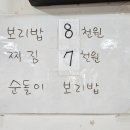 보리밥 8 천원
찌짐 7 천원
순돌이 보리밥